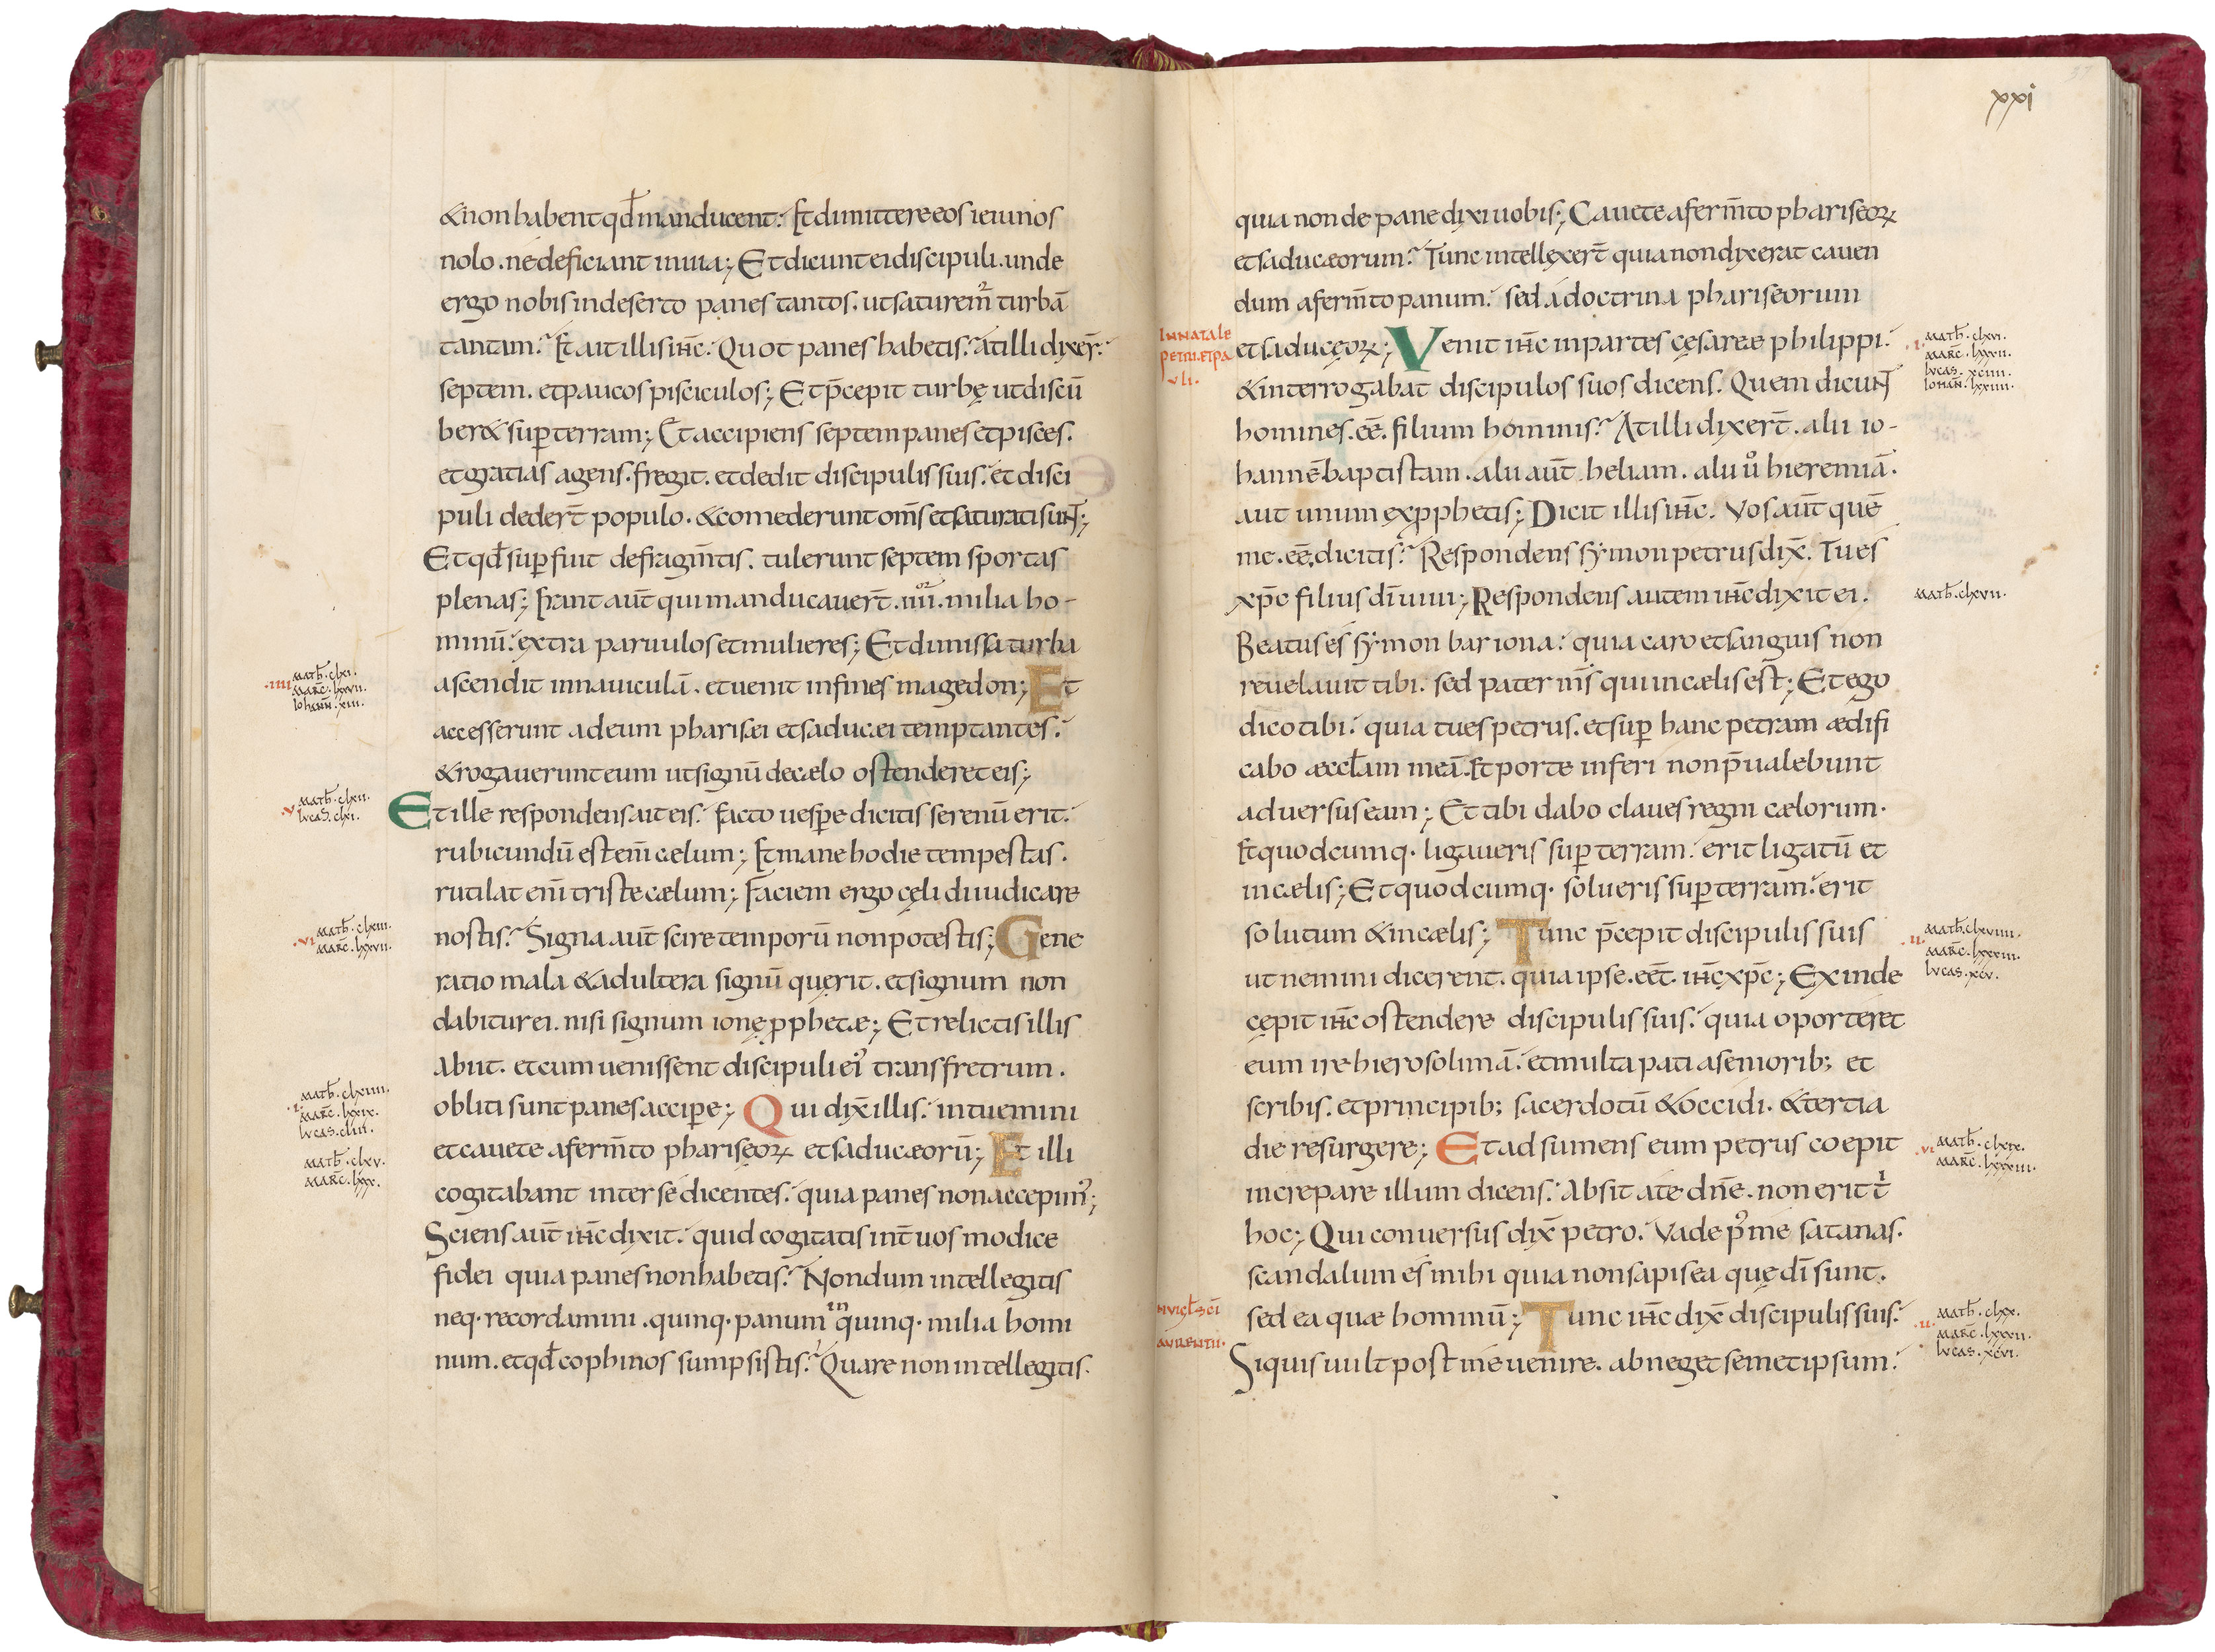 &non habent qđ manducent. Et dimittere eos ieiunos
nolo. ne deficiant in uia; Et dicunt ei discipuli. unde
ergo nobis in deserto panes tantos. ut saturem̄ turbā
tantam. Et ait illis ih̄c. Quot panes habetis. at illi dixer̄.
septem. et paucos pisciculos; Et p̄cepit turbę ut discū
ber& sup̱ terram; Et accipiens septem panes et pisces.
et gratias agens. fregit. et dedit discipulis suis. et disci
puli deder̄t populo. &comederunt om̄s et saturati sunt;
Et qđ sup̱fuit de fragm̄tis. tulerunt septem sportas
plenas; Erant aūt qui manducauer̄t. iiii. milia ho-
minū. extra paruulos et mulieres; Et dimissa turba
·iiii
math̄. clxi.
marc̄. lxxvii.
iohann̄. xiii.
ascendit in nauiculā. et uenit in fines magedon; Et
accesserunt ad eum pharisæi et saducæi temptantes.
&rogauerunt eum ut signū de cælo ostenderet eis;
·v
math̄. clxii.
lucas. clxi.
Et ille respondens ait eis. facto uesp̱e dicitis serenū erit.
rubicundū est eni̅ cælum; Et mane hodie tempestas.
rutilat eni̅ triste cælum; Faciem ergo cęli diiudicare
·vi
math̄. clxiii.
marc̄. lxxvii.
nostis. Signa aūt scire temporū non potestis; Gene
ratio mala &adultera signū quęrit. et signum non
dabitur ei. nisi signum ionę ꝓphetæ; Et relictis illis
abiit. et cum uenissent discipuli ei᾽ trans fretrum.
·i·
math̄. clxiiii.
marc̄. lxxix.
lucas. cliii.
obliti sunt panes accip̱e; Qui dix̄ illis. intuemini
math̄. clxv.
marc̄. lxxx.
et cauete a ferm̄to phariseoꝝ et saducæorū; Et illi
cogitabant inter se dicentes. quia panes non accepim᾽;
Sciens aūt ih̄c dixit. quid cogitatis int̄ uos modice
fidei quia panes non habetis. Nondum intellegitis
neq· recordamini. quinq· panum in quinq· milia homi
num. et qđ cophinos sumpsistis. Quare non intellegitis.
xxi
quia non de pane dixi uobis; Cauete a ferm̄to phariseoꝝ
et saducæorum. Tunc intellexer̄t quia non dixerat cauen
dum a ferm̄to panum. sed a doctrina phariseorum
IN NATALE
PETRI. ET PA
ULI.
et saducęoꝝ; Venit ih̄c in partes cęsareæ philippi.
·i·
math̄. clxvi.
marc̄. lxxvii.
lucas. xciiii.
iohan̄. lxxiiii.
&interrogabat discipulos suos dicens. Quem dicunt
homines. ēē. filium hominis. At illi dixer̄t. alii io-
hannē baptistam. alii aūt. heliam. alii ů hieremiā.
aut unum ex ꝓphetis; Dicit illis ih̄c. Vos aūt quē
me. ēē. dicitis. Respondens symon petrus dix̄. Tu es
xp̄c filius dī uiui; Respondens autem ih̄c dixit ei.
math̄. clxvii.
Beatus es symon bar iona. quia caro et sanguis non
reuelauit tibi. sed pater m̄s qui in cælis est̄; Et ego
dico tibi. quia tu es petrus. et sup̱ hanc petram ædifi
cabo æccłam meā. Et porte inferi non p̄ualebunt
aduersus eam; Et tibi dabo claues regni cælorum.
Et quodcumq· ligaueris sup̱ terram. erit ligatū et
in cælis; Et quodcumq· solueris sup̱ terram. erit
solutum &in cælis; Tunc p̄cepit discipulis suis
ii
math̄. clxviiii.
marc̄. lxxxiii.
lucas. xcv.
ut nemini dicerent. quia ipse. eēt. ih̄c xp̄c; Exinde
cępit ih̄c ostendere discipulis suis. quia oporteret
eum ire hierosolimā. et multa pati a seniorib; et
scribis. et principib; sacerdotū &occidi. &tertia
die resurgere; Et adsumens eum petrus coepit
·vi
math̄. clxix.
marc̄. lxxxiii.
increpare illum dicens. Absit a te dn̄e. non erit t̍
hoc; Qui conuersus dix̄ petro. Vade p᾽ me satanas.
scandalum es mihi quia non sapis ea quę dī sunt.
sed ea quæ hominū; Tunc ih̄c dix̄ discipulis suis.
·ii·
math̄. clxx.
marc̄. lxxxii.
lucas. xcvi.
Si quis uult post me uenire. abneget semetipsum.